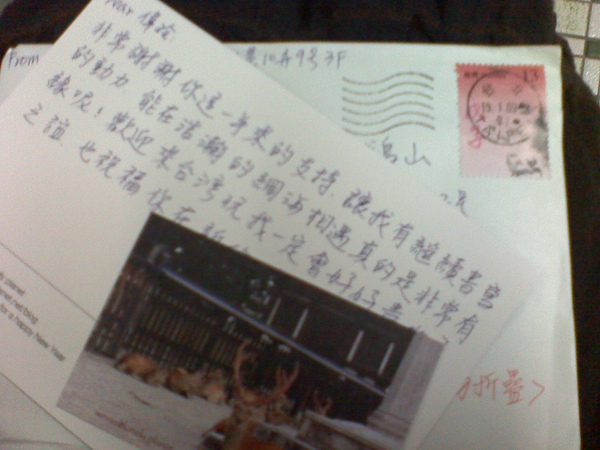 Dear
非常謝謝你這一年來的支持，讓我有繼續書寫
的動力 能在浩瀚的網海相遇真的是非常有
緣呢！歡迎來台灣玩我一定會好好盡
之誼 也祝福你在新
From
巷10弄9號3F
13
山
折疊>
planet
anet.net/blog
for a happy New Year